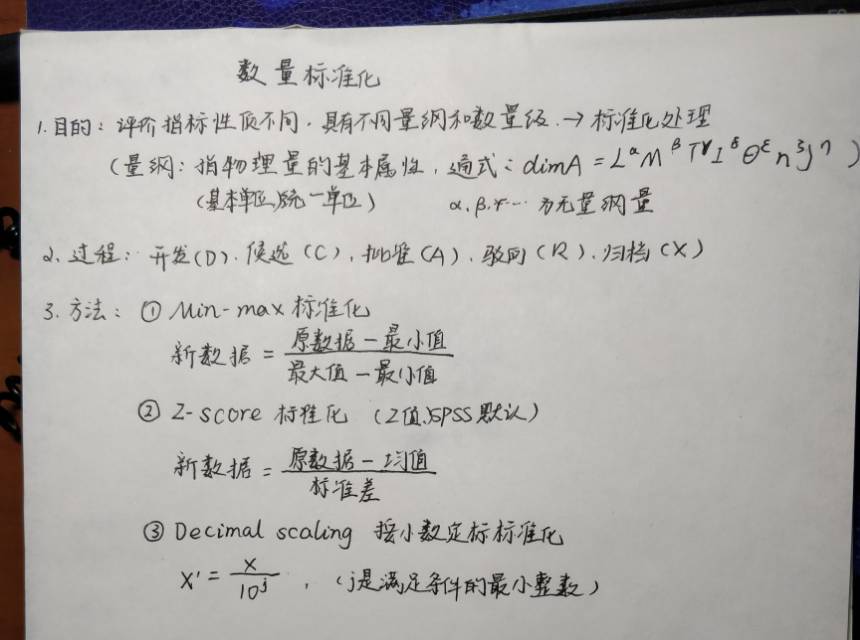 数量标准化
1.目的：评价指标性质不同，具有不同量纲和数量级.→标准化处理
（量纲：指物理量的基本属性，通式：dimA=L^αM^βT^γI^δΘ^εn^ξJ^η）
（基本单位,统一单位） α,β,γ…为无量纲量
2.过程：开发(D).候选(C),批准(A).驳回(R).归档(X)
3.方法：①Min-max标准化
新数据=原数据－最小值
最大值－最小值
②Z-score标准化（Z值,SPSS默认）
新数据=原数据－均值
标准差
③Decimal scaling 按小数定标标准化
X'=X/10^j，（j是满足条件的最小整数）